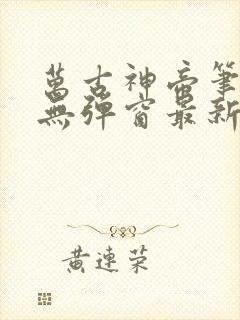 萬古神帝筆
無彈窗最新
黃連榮